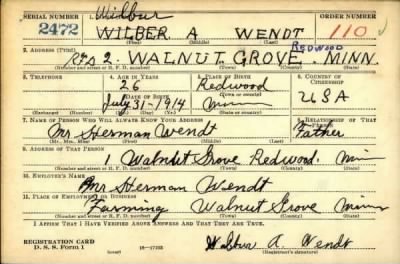 SERIAL NUMBER 1. NAME (Print) Wilbur ORDER NUMBER
2472 WILBER A WENDT 110
(First) (Middle) (Last)
2. ADDRESS (Print) REDWOOD
Rts 2. WALNUT GROVE. MINN.
(Number and street or R. F. D. number) (Town) (County) (State)
3. TELEPHONE 4. AGE IN YEARS 5. PLACE OF BIRTH 6. COUNTRY OF CITIZENSHIP
26 Redwood
DATE OF BIRTH (Town or county)
July 31-1914 Minn USA
(Exchange) (Number) (Mo.) (Day) (Yr.) (State or country)
7. NAME OF PERSON WHO WILL ALWAYS KNOW YOUR ADDRESS 8. RELATIONSHIP OF THAT PERSON
Mr Herman Wendt Father
(Mr., Mrs., Miss) (First) (Middle) (Last)
9. ADDRESS OF THAT PERSON
1 Walnut Grove Redwood. Minn
(Number and street or R. F. D. number) (Town) (County) (State)
10. EMPLOYER'S NAME
Mr Herman Wendt
11. PLACE OF EMPLOYMENT OR BUSINESS
Farming Walnut Grove Minn
(Number and street or R. F. D. number) (Town) (County) (State)
I AFFIRM THAT I HAVE VERIFIED ABOVE ANSWERS AND THAT THEY ARE TRUE.
REGISTRATION CARD
D. S. S. Form 1 (over) Wilbur A. Wendt